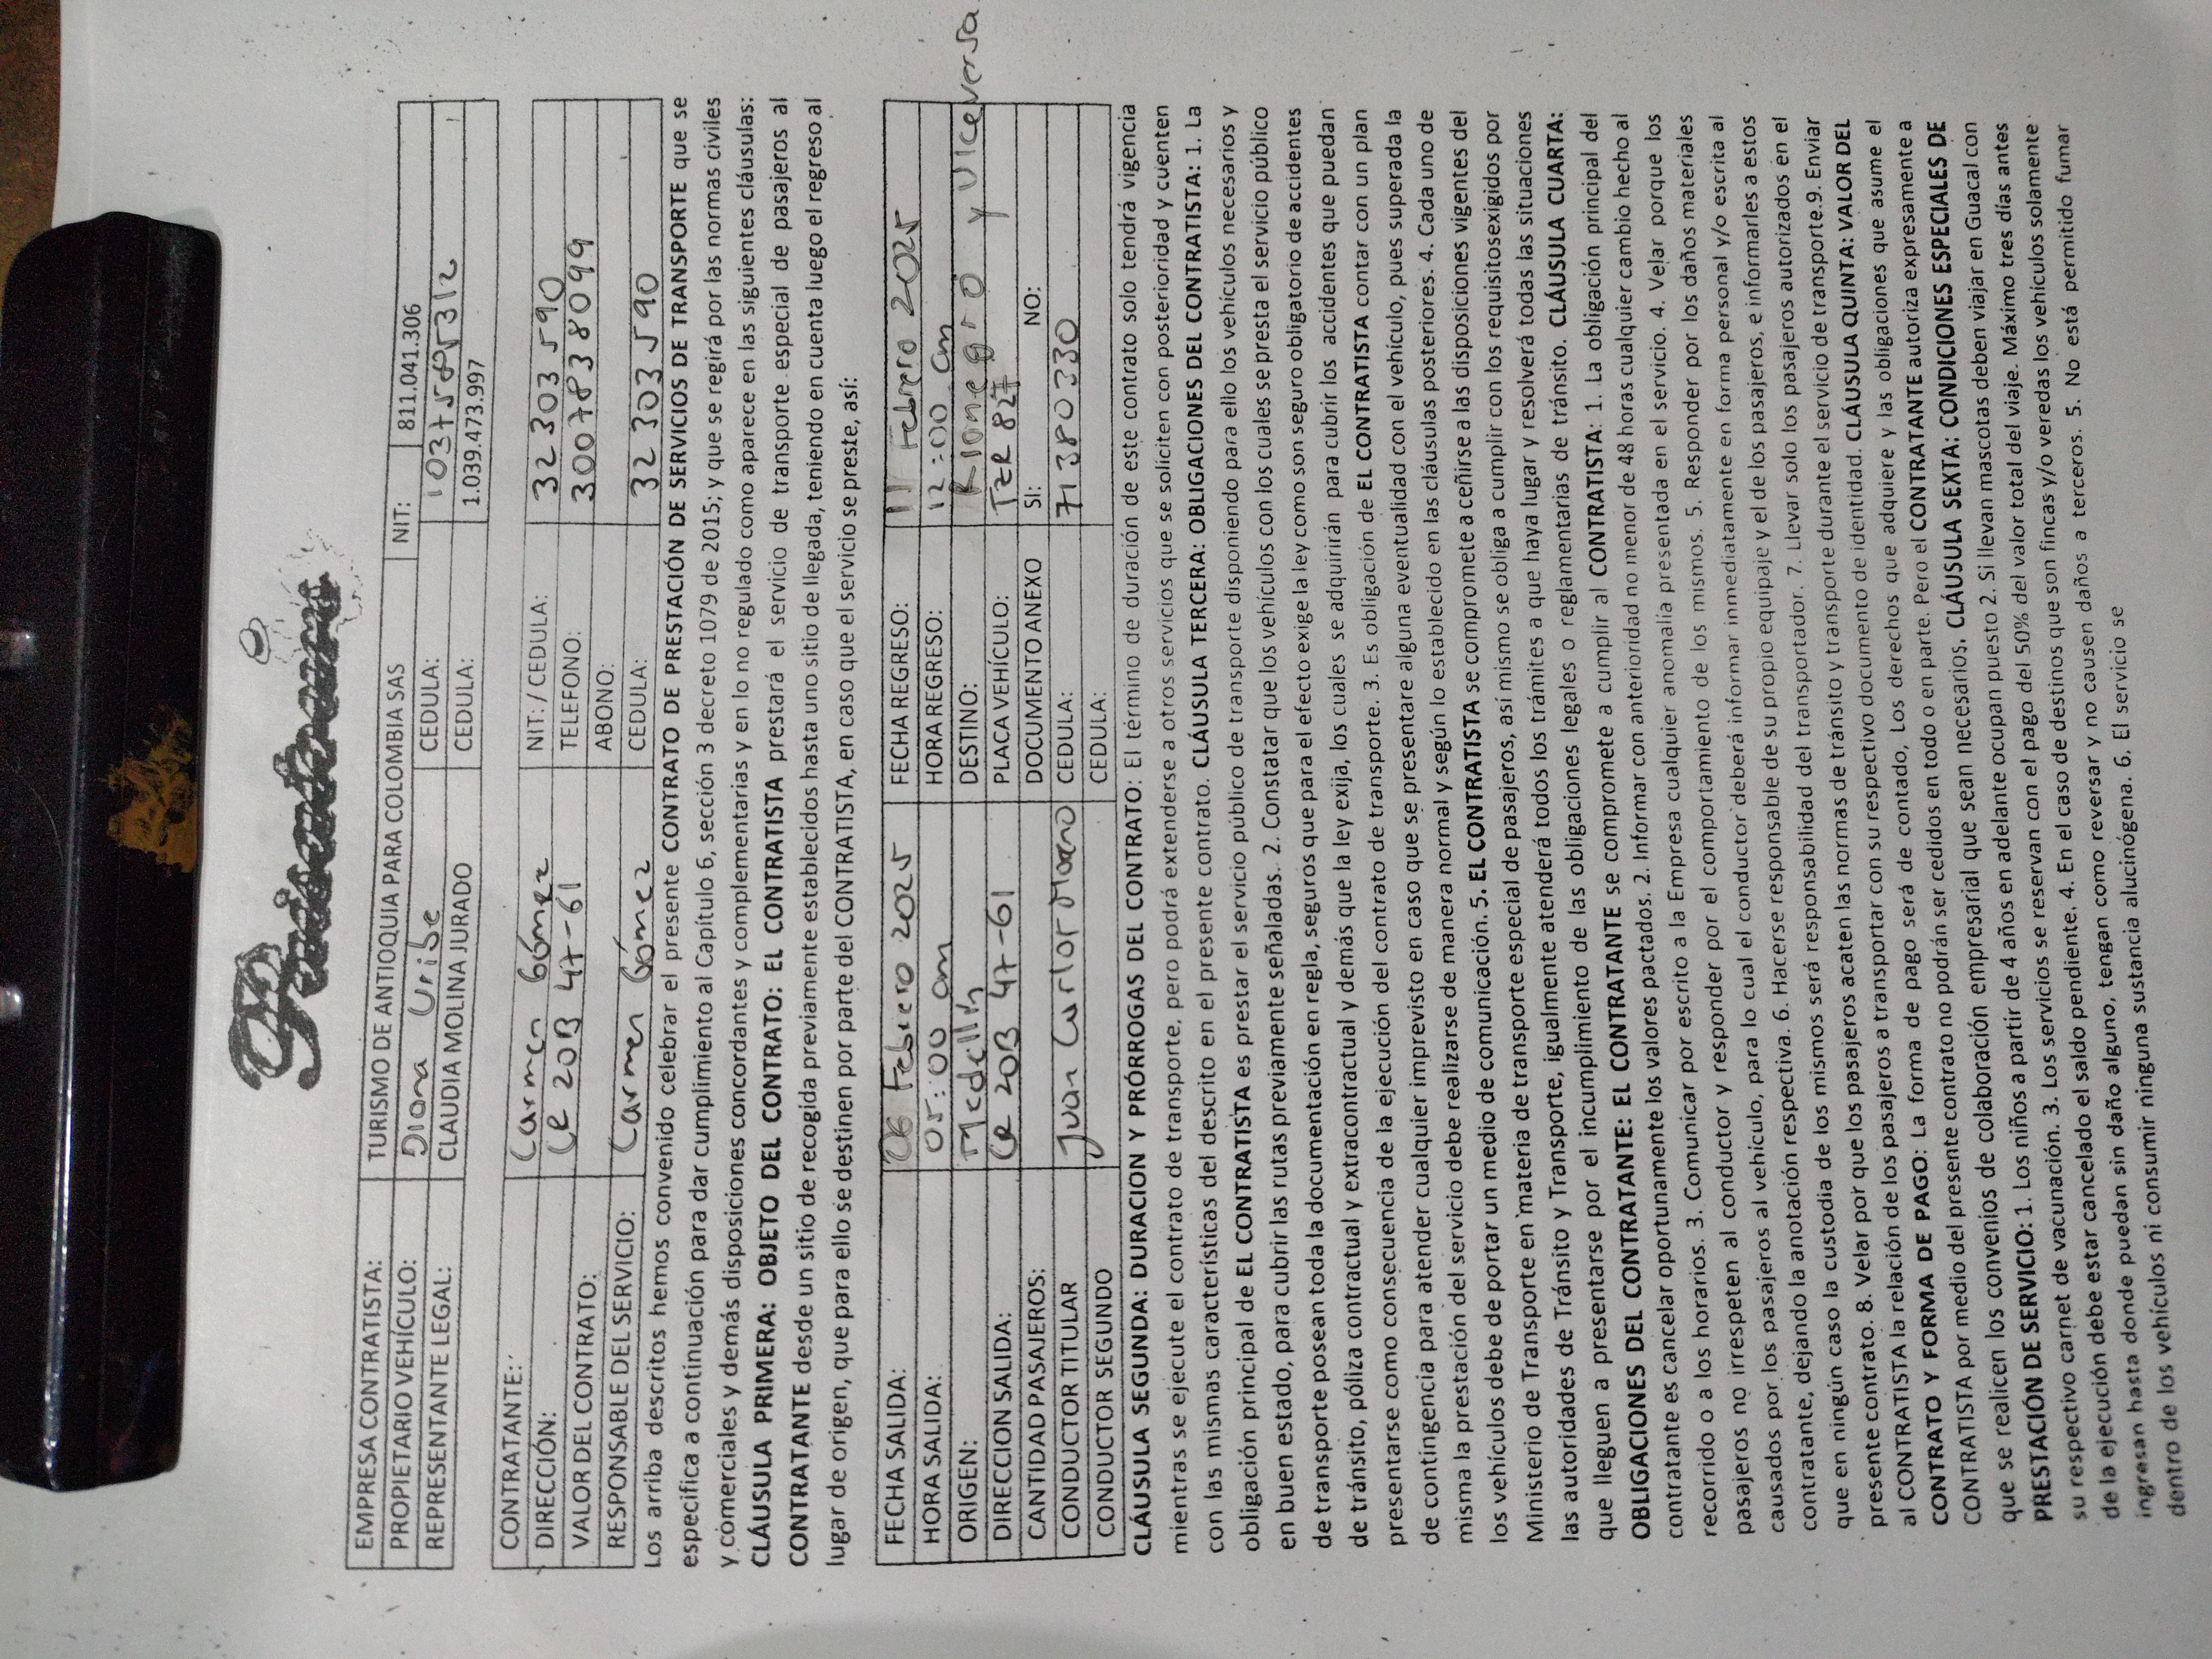 EMPRESA CONTRATISTA: TURISMO DE ANTIOQUIA PARA COLOMBIA SAS NIT: 811.041.306
PROPIETARIO VEHÍCULO: Diana Uribe CEDULA:
REPRESENTANTE LEGAL: CLAUDIA MOLINA JURADO CEDULA: 1.039.473.997
CONTRATANTE: Carmen Gómez NIT: / CEDULA: 32 303 590
DIRECCIÓN: Ce 20B 47-61 TELEFONO: 3007838099
VALOR DEL CONTRATO: ABONO:
RESPONSABLE DEL SERVICIO: Carmen Gómez CEDULA: 32 303 590
Los arriba descritos hemos convenido celebrar el presente CONTRATO DE PRESTACIÓN DE SERVICIOS DE TRANSPORTE que se
especifica a continuación para dar cumplimiento al Capítulo 6, sección 3 decreto 1079 de 2015; y que se regirá por las normas civiles
y comerciales y demás disposiciones concordantes y complementarias y en lo no regulado como aparece en las siguientes cláusulas:
CLÁUSULA PRIMERA: OBJETO DEL CONTRATO: EL CONTRATISTA prestará el servicio de transporte especial de pasajeros al
CONTRATANTE desde un sitio de recogida previamente establecidos hasta uno sitio de llegada, teniendo en cuenta luego el regreso al
lugar de origen, que para ello se destinen por parte del CONTRATISTA, en caso que el servicio se preste, así:
FECHA SALIDA: 06 Febrero 2025 FECHA REGRESO: 11 Febrero 2025
HORA SALIDA: 05:00 am HORA REGRESO: 12:00 am
ORIGEN: Medellín DESTINO: Rionegro y viceversa
DIRECCION SALIDA: Ce 20B 47-61 PLACA VEHÍCULO: TZR 827
CANTIDAD PASAJEROS: DOCUMENTO ANEXO SI: NO:
CONDUCTOR TITULAR Juan Carlos Moreno CEDULA: 71380330
CONDUCTOR SEGUNDO CEDULA:
CLÁUSULA SEGUNDA: DURACION Y PRÓRROGAS DEL CONTRATO: El término de duración de este contrato solo tendrá vigencia
mientras se ejecute el contrato de transporte, pero podrá extenderse a otros servicios que se soliciten con posterioridad y cuenten
con las mismas características del descrito en el presente contrato. CLÁUSULA TERCERA: OBLIGACIONES DEL CONTRATISTA: 1. La
obligación principal de EL CONTRATISTA es prestar el servicio público de transporte disponiendo para ello los vehículos necesarios y
en buen estado, para cubrir las rutas previamente señaladas. 2. Constatar que los vehículos con los cuales se presta el servicio público
de transporte posean toda la documentación en regla, seguros que para el efecto exige la ley como son seguro obligatorio de accidentes
de tránsito, póliza contractual y extracontractual y demás que la ley exija, los cuales se adquirirán para cubrir los accidentes que puedan
presentarse como consecuencia de la ejecución del contrato de transporte. 3. Es obligación de EL CONTRATISTA contar con un plan
de contingencia para atender cualquier imprevisto en caso que se presentare alguna eventualidad con el vehículo, pues superada la
misma la prestación del servicio debe realizarse de manera normal y según lo establecido en las cláusulas posteriores. 4. Cada uno de
los vehículos debe de portar un medio de comunicación. 5. EL CONTRATISTA se compromete a ceñirse a las disposiciones vigentes del
Ministerio de Transporte en materia de transporte especial de pasajeros, así mismo se obliga a cumplir con los requisitosexigidos por
las autoridades de Tránsito y Transporte, igualmente atenderá todos los trámites a que haya lugar y resolverá todas las situaciones
que lleguen a presentarse por el incumplimiento de las obligaciones legales o reglamentarias de tránsito. CLÁUSULA CUARTA:
OBLIGACIONES DEL CONTRATANTE: EL CONTRATANTE se compromete a cumplir al CONTRATISTA: 1. La obligación principal del
contratante es cancelar oportunamente los valores pactados. 2. Informar con anterioridad no menor de 48 horas cualquier cambio hecho al
recorrido o a los horarios. 3. Comunicar por escrito a la Empresa cualquier anomalía presentada en el servicio. 4. Velar porque los
pasajeros no irrespeten al conductor y responder por el comportamiento de los mismos. 5. Responder por los daños materiales
causados por los pasajeros al vehículo, para lo cual el conductor deberá informar inmediatamente en forma personal y/o escrita al
contratante, dejando la anotación respectiva. 6. Hacerse responsable de su propio equipaje y el de los pasajeros, e informarles a estos
que en ningún caso la custodia de los mismos será responsabilidad del transportador. 7. Llevar solo los pasajeros autorizados en el
presente contrato. 8. Velar por que los pasajeros acaten las normas de tránsito y transporte durante el servicio de transporte.9. Enviar
al CONTRATISTA la relación de los pasajeros a transportar con su respectivo documento de identidad. CLÁUSULA QUINTA: VALOR DEL
CONTRATO Y FORMA DE PAGO: La forma de pago será de contado, Los derechos que adquiere y las obligaciones que asume el
CONTRATISTA por medio del presente contrato no podrán ser cedidos en todo o en parte. Pero el CONTRATANTE autoriza expresamente a
que se realicen los convenios de colaboración empresarial que sean necesarios. CLÁUSULA SEXTA: CONDICIONES ESPECIALES DE
PRESTACIÓN DE SERVICIO: 1. Los niños a partir de 4 años en adelante ocupan puesto 2. Si llevan mascotas deben viajar en Guacal con
su respectivo carnet de vacunación. 3. Los servicios se reservan con el pago del 50% del valor total del viaje. Máximo tres días antes
de la ejecución debe estar cancelado el saldo pendiente. 4. En el caso de destinos que son fincas y/o veredas los vehículos solamente
ingresan hasta donde puedan sin daño alguno, tengan como reversar y no causen daños a terceros. 5. No está permitido fumar
dentro de los vehículos ni consumir ninguna sustancia alucinógena. 6. El servicio se